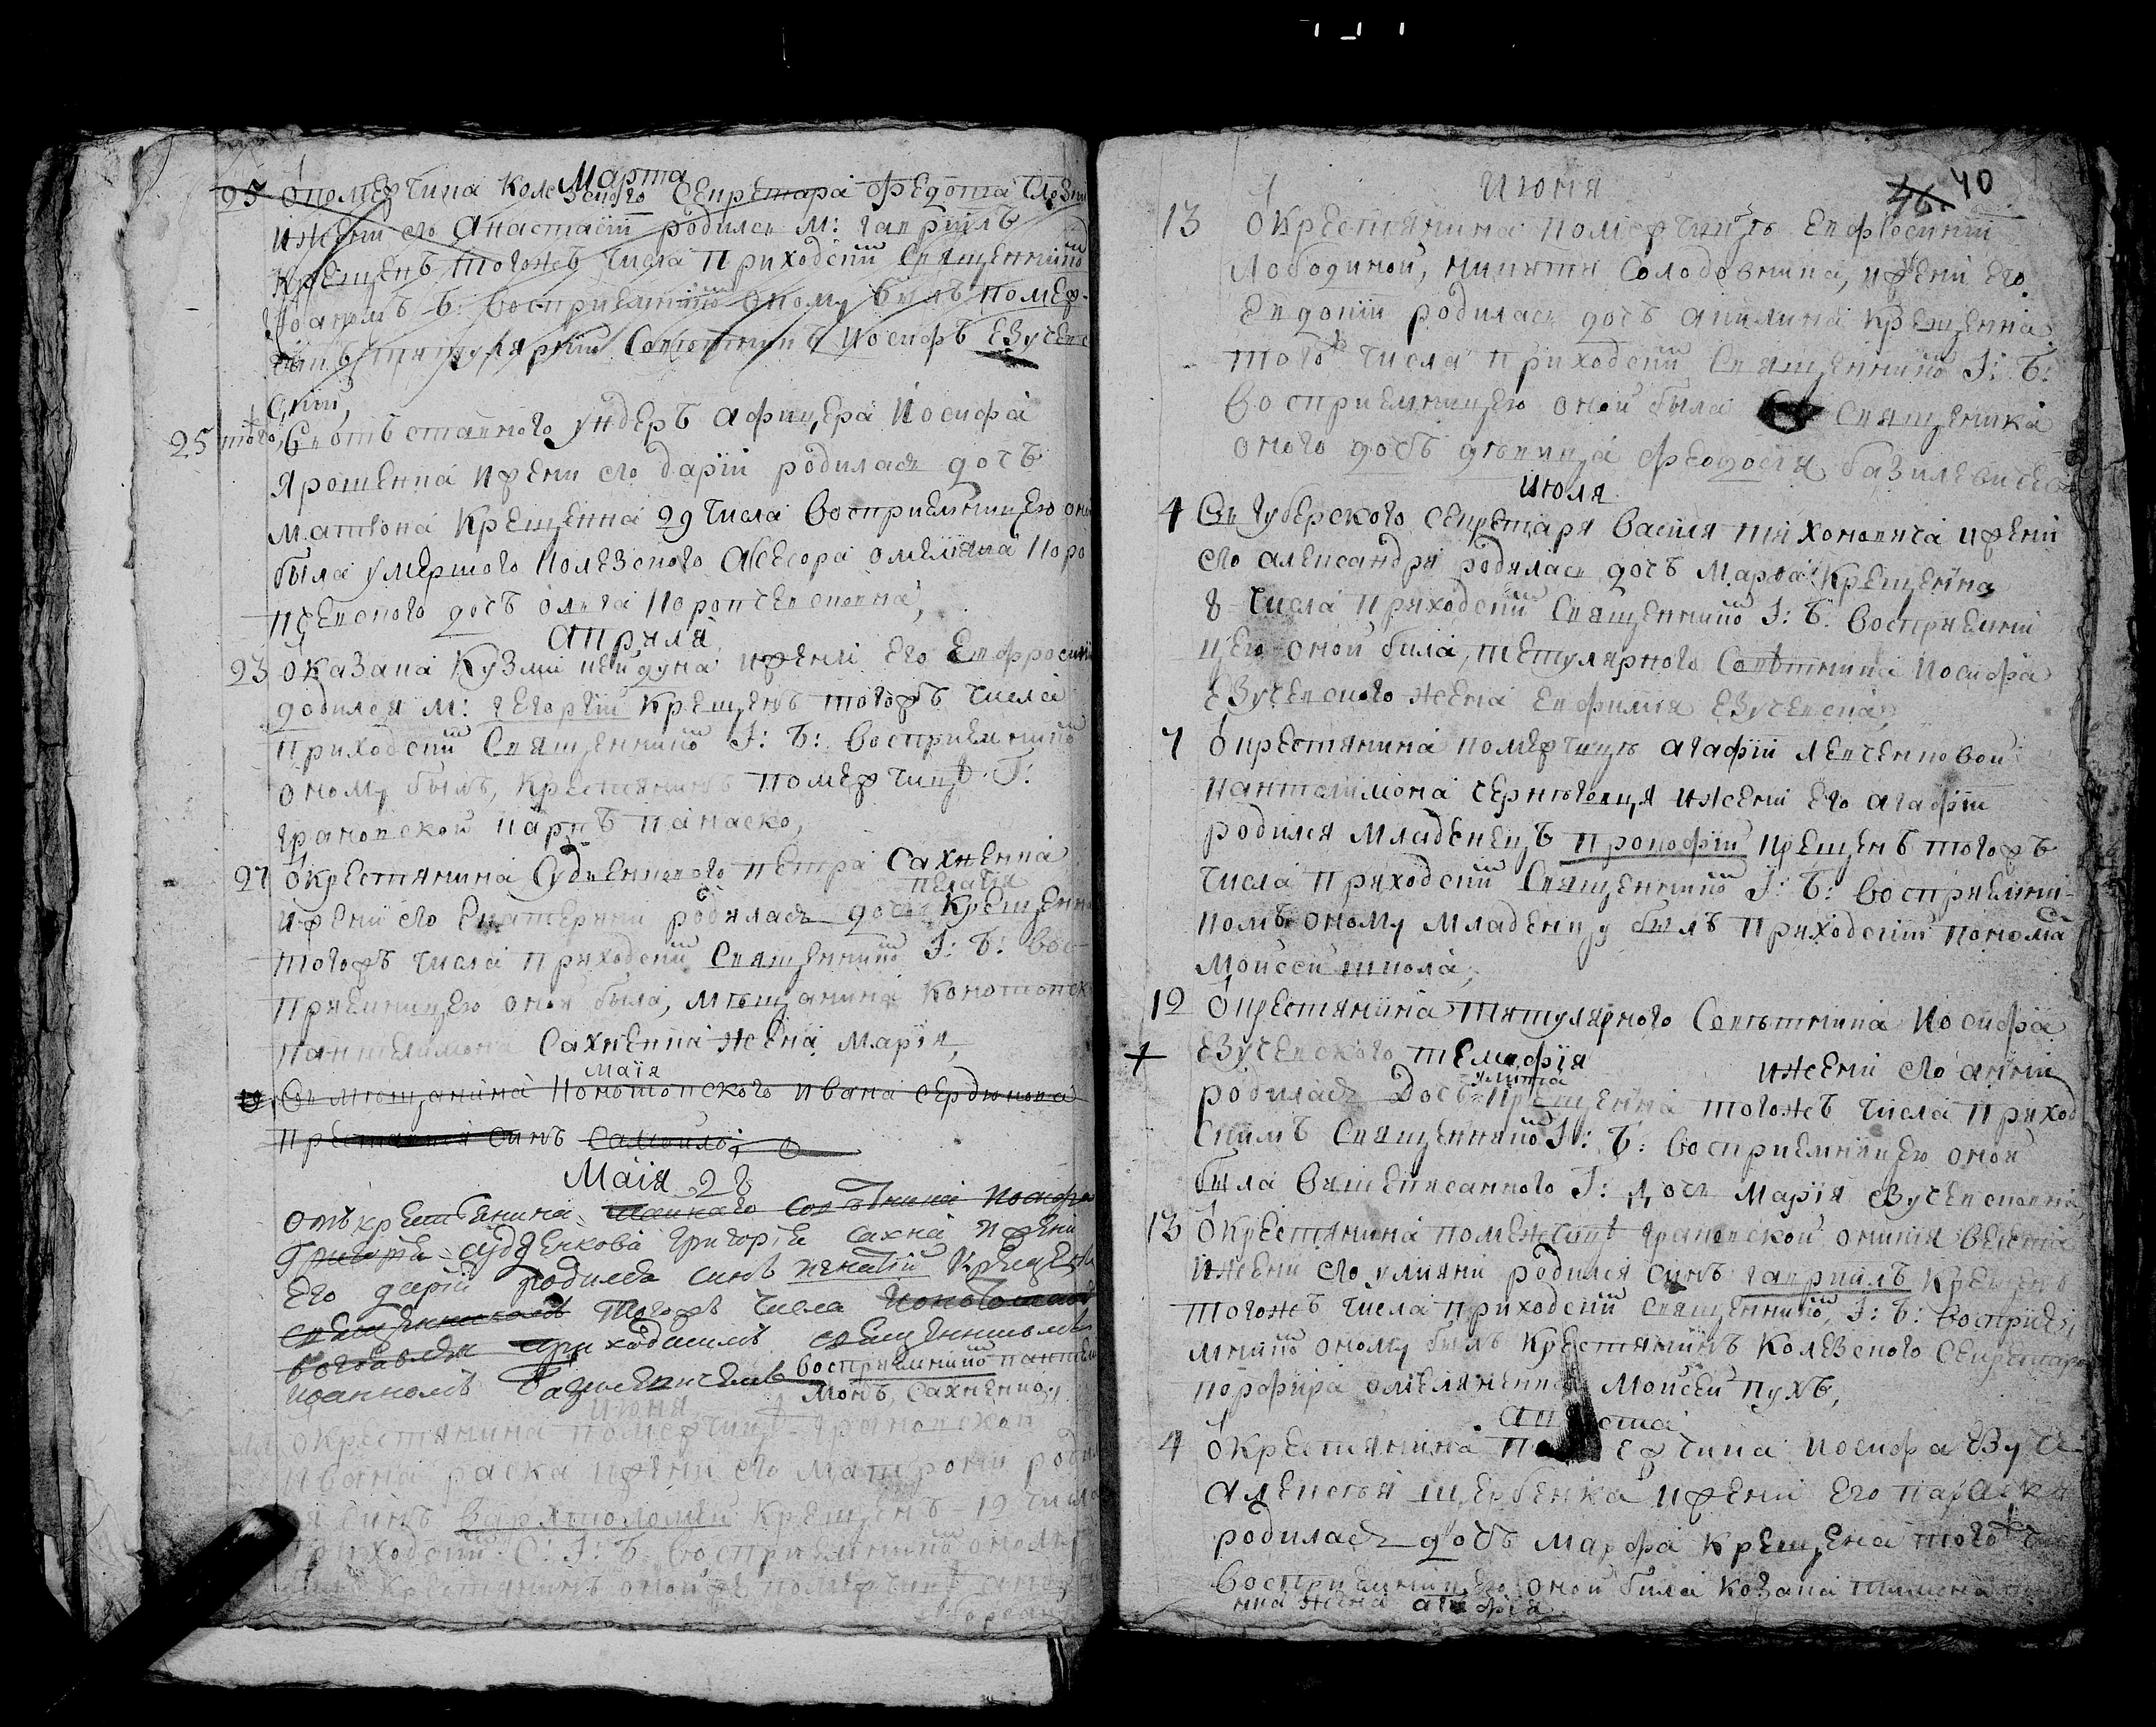 Марта
25 У помещика колезского секретара Федота
и жени его Анастасіи родился м: Гавріилъ
крещенъ тогожъ числа приходскій священникъ
Іоаномъ Б: восприемникъ оному былъ помещ-
икъ титулярній советникъ Иосифъ Езучев-
скій,
25 того, У отъставного ундеръ афицера Иосифа
Ярошенка и жени его Дарїи родилась дочъ
Матвона крещенна 29 числа восприемницею оно
была умершого колезского асесора Омеляна Поро
пчевского дочъ Олга Поропчевсковна,
Априля
23 У казака Кузми Нейдуна и жени его Евфросинии
родился м: Георгїй крещенъ тогожъ числа
приходскїй священникъ І: Б: восприемникъ
оному былъ, крестянинъ помещици
Грановской Карпъ Панаско,
27 У крестянина Судиенкового Петра Сахненка
Пелагїя
и жени его Екатерини родилась дочъ крещенна
тогожъ числа приходскїй священникъ І: Б: вос-
приемницею оной была, мѣщанина конотопск
Пантелимона Сахненка жена Марїя,
Маїя
У мѣщанина конотопского Ивана Сердюкова
преставися синъ Самоилъ
Маїя 28
Отъ крестьянина советника Иосифа
Григорїя Судденкова Григорїя Сахна и жени
его Дарїи родился синъ Игнатїй крещенъ
священникомъ тогожъ числа
приходскимъ священникомъ
Иоанномъ Базилевичемъ восприемникъ Пантели
монъ Сахненко,
Июня
У крестянина помещици Грановской
Ивана Раска и жени его Матрони роди
ся синъ Вархтоломей крещенъ 19 числа
приходскїй С: І: Б: восприемникъ оному
крестянинъ оной же помещици
40
Июня
13 У крестянина помещици Евфросинїи
Лободиной, Никити Солодовника, и жени его
Евдокїи родилась дочъ Акилина крещенна
того ж числа приходскїй священникъ І: Б:
восприемницею оной была священика
оного дочъ дѣвица Феодосїя Базилевичев
Июля
4 У губерского секретаря Василя Тихоновича и жени
его Александри родилась дочъ Марфа крещенна
8 числа приходскїй священникъ І: Б: восприемни
цею оной била, тетулярного советника Иосифа
Езучевского жена Евфимїя Езучевска,
7 У крестянина помещици Агафїи Левченковой
Пантелимона Чернѣговця и жени его Агафїи
родился младенецъ Прокофїй крещенъ тогожъ
числа приходскїй священникъ І: Б: восприемни-
комъ оному младенцу былъ приходскїй понома
Мойсей Школа,
12 У крестянина титулярного советника Иосифа
Езучевского Темофїя и жени его Анни
Улита
родилась дочъ крещенна тогожъ числа приход
скимъ священникъ І: Б: восприемницею оной
была вишеписанного І: дочъ Марїя Езучевсковна
13 У крестянина помежици Грановской Оникїя Велета
и жени его Улияни родился синъ Гавриилъ крещенъ
тогожъ числа приходскїй священникъ, І: Б: восприе
мникъ оному былъ крестянинъ колезского секретаря
Порфира Омеляненка Мойсей Пухъ,
Августа
4 У крестянина помещика Иосифа Езуче
Алексѣя Щербенка и жени его Параски
родилась дочъ Марфа крещена того ж чи
восприемницею оной била козака
ика жена Агафїя